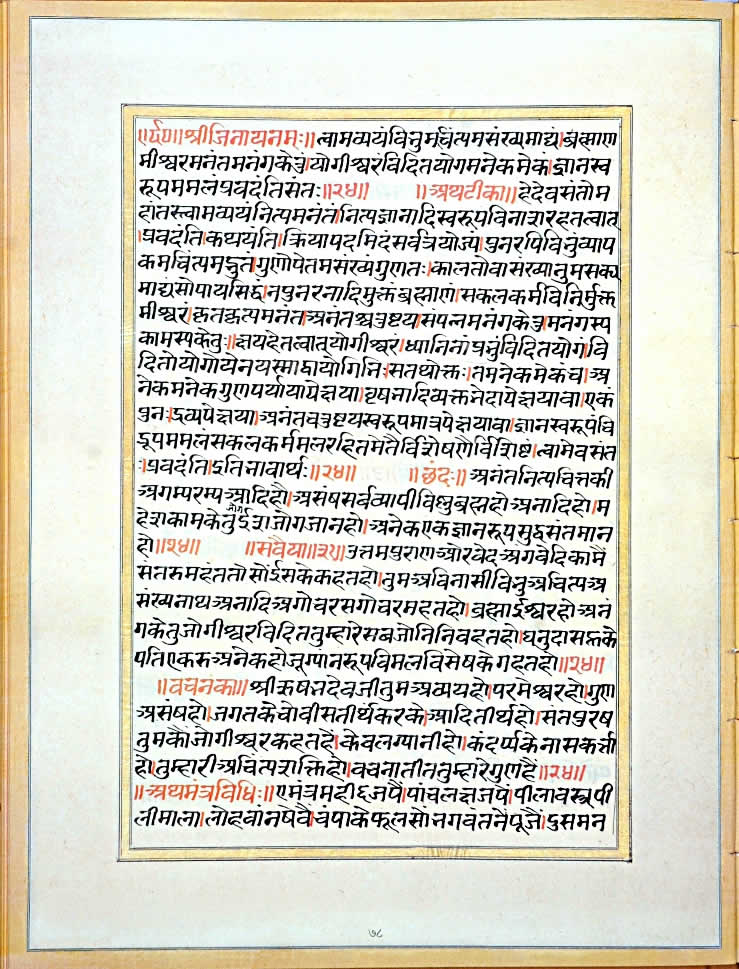 ॥र्द०॥श्रीजिनायनमः॥त्वामव्ययंविभुमचिंत्यमसंख्यमाद्यं।ब्रह्माण
मीश्वरमनंतमनंगकेतुं।योगीश्वरंविदितयोगमनेकमेकं।ज्ञानस्व
रूपममलंप्रवदंतिसंतः॥२४॥ ॥अथटीका॥हेदेवसंतोम
हांतस्त्वामव्ययंनित्यमनंतं।नित्यज्ञानादिस्वरूपविनाशरहतत्वात्
।प्रवदंति।कथयंति।क्रियापदमिदंसर्वत्रयोज्यं।पुनरपिविभुंव्याप
कमचिंत्यमद्भुतं।गुणोपेतमसंख्यंगुणतः।कालतोवासंख्यानुमसक्य
माद्यंसोपार्यसिद्धं।नपुनरनादिमुक्तंब्रह्माणं।सकलकर्मविनिर्मुक्त
मीश्वरं।कृतकृत्यमनंत।अनंतश्चतुष्टय।संपन्नमनंगकेतुं।मनंगस्य
कामस्यकेतुः॥क्षयहेतत्वात्।योगीश्वरं।ध्यानिनांप्रभुंविदितयोगं।वि
दितोयोगोयेनयस्माद्वायोगिभिः।सतथोक्तः।तमनेकमेकंच।अ
नेकमनेकगुणपर्यायापेक्षया।वृषभादिव्यक्तभेदापेक्षयावा।एकं
पुनः।द्रव्यपेक्षया।अनंतचतुष्टयस्वरूपमात्रपेक्षयावा।ज्ञानस्वरूपंचि
द्रूपममलंसकलकर्ममलरहितमेतैर्विशेषणैर्विशिष्टं।त्वामेवसंत
ःप्रवदंति।इतिभावार्थः॥२४॥ ॥छंदः॥अनंतनित्यचित्तकी
अगम्परम्पआदिहौ।असंषसर्वव्यापीविष्णुब्रह्महौ।अनादिहौ।म
हेशकामकेतुईशजोगजानहौ।अनेकएकज्ञानरूपसुद्धसंतमान
हौ॥२४॥ ॥सवैया॥३१॥उत्तमपुराणऔरवेदअगवेदिकामैं
संतरुमहंततोसोंईसकेकहतहौ।तुमअविनासीविभुअचित्यअ
संख्यनाथअनादिअगोचरसगोचरमहतहो।ब्रह्माईश्वरहोअनं
गकेतुजोगीश्वरविदिततुम्हारेसबजोनिनिवहतहो।धनुदासहूके
पतिएकरुअनेकहो।जूग्यांनरूपविमलविसेषकेगहतहौ॥२४॥
॥वचनका॥श्रीरूषभदेवजीतुमअव्ययहो।परमेश्वरहो।गुण
असंषहो।जगतकेचोवीसतीर्थकरके।आदितीर्थहौ।संतपुरष
तुमकौंजोगीश्वरकहतहैं।केवलग्यानीहो।कंदर्प्पकेनासकर्त्ता
हो।तुम्हारीअचित्यशक्तिहो।वचनातीततुम्हारेगुणहैं॥२४॥
॥अथमंत्रविधिः॥एमंत्रमहीद्धजपैं।पांचलक्षजपैं।पीलावस्त्रपी
लीमाला।लोहवांनषेवै।चंपाकेफूलसोंभगवतनैंपूजैं।दुसमन
७८